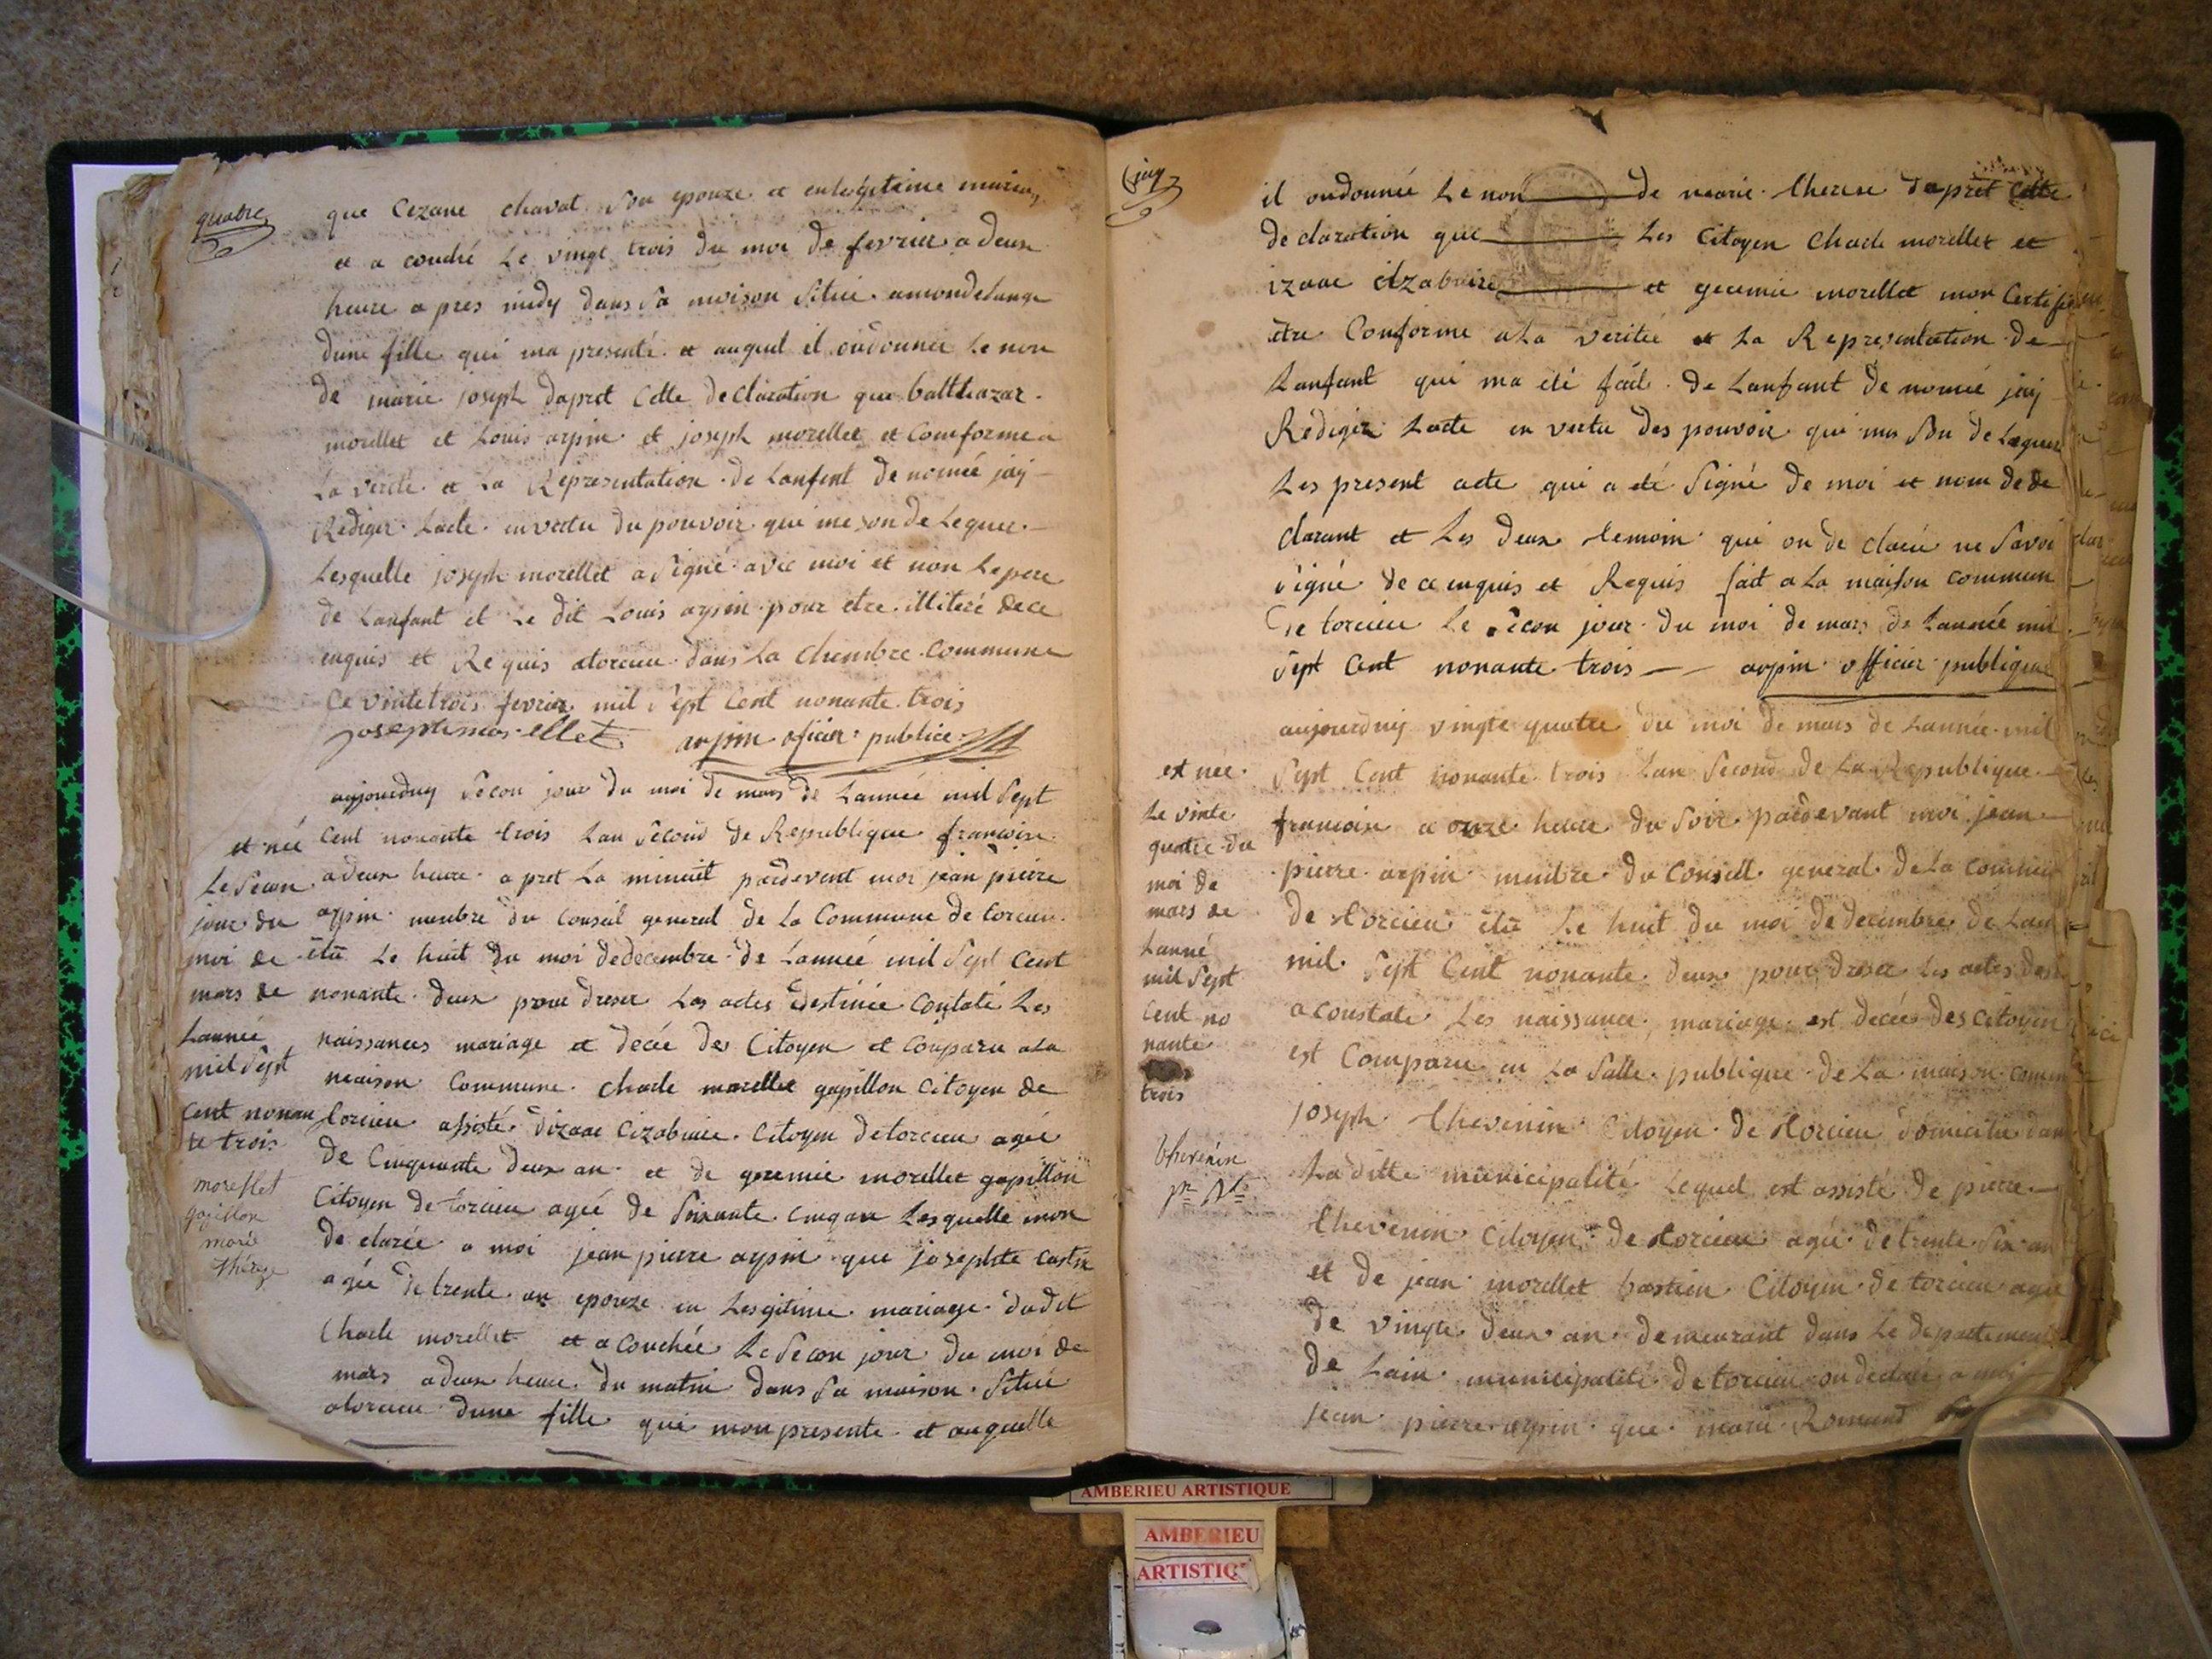 quatre
que Cezane chavat Son epouze et en legetime mariag
et a couché Le vingt trois du moi de fevrier a deux
heure apres midy dans Sa maison Situé amondelange
dune fille qui ma presenté et auquel il ondonnee Le non
de marie joseph dapret Cette declaration que balthazar
morellet et Louis arpin et joseph morellet et Comforme a
La verité et La Representation de Lanfent de nomée jaÿ
Rediger Lacte en vertu du pouvoir qui me son de Leguer
Lesquelle joseph morellet a Signé avec moi et non Lepere
de Lanfant et Le dit Louis arpin pour etre illiteré de ce
enquis et Requis atorcieu dans La Chambre Commune
Ce vintetrois fevrier mil Sept Cent nonante trois
joseph morellet arpin oficier publice
aujourduy Secon jour du moi de mars de Lannéé mil Sept
Cent nonante trois Lan Second de Republique francoise
a deux heure apret La minuit pardevent moi jean pieire
arpin menbre du Conseil general de La Commune de torcieu
élu Le huit du moi dedecembre de Lannéé mil Sept Cent
nonante deux pour dreser Les actes destinée Contaté Les
naissances mariage et decée des Citoyen et Conparu a La
maison Commune Charle morellet gapillon Citoyen de
torcieu assisté dizaac Cizabuire Citoyen de torcieu agée
de Cinquante deux an et de geremie morellet gapillon
Citoyen de torcieu agéé de Soixante Cinq an Lesquelle mon
de clarée a moi jean pierre arpin que josephte Castin
agée de trente an epouze en Lesgitime mariage dudit
Charle morellet et a Couchée Le Secon jour du moi de
mars adeux heure du matin dans Sa maison Situé
atorcieu dune fille que mon presente et auquelle
et néé
Le Secon
jour du
moi de
mars de
Lannéé
mil Sept
Cent nonan
te trois
morellet
gapillon
marie
thereze
jaÿ
il ondonnéé Le non de marie therese dapret Cette
declaration que Les Citoyen Charle morellet et
izaac et geremie morellet mon Certifie
etre Conforme a La veritée et La Representation de
Lanfant qui ma été fait de Lanfant de nomée jaÿ
Rediger Lacte en vertu des pouvoir qui ma Son de Leguer
Les present acte qui a eté Signé de moi et nom de de
clarant et Les deux temoin qui on de claréé ne Savoi
Signé de ce enquis et Requis fait a La maison Commun
de torcieu Le Secon jour du moi de mars de Lannéé mil
Sept Cent nonante trois arpin officier publique
aujourduÿ vingte quatre du moi de mars de Lannéé mil
Sept Cent nonante trois Lan Second de La Republique
francoise a onze heure du Soir pardevant moi jean
pierre arpin menbre du Conseil general de La Commun
de torcieu élu Le huit du moi dedecembre de Lan
mil Sept Cent nonante deux pour dreser Les actes des
a constate Les naissance, mariage est decée des Citoyen
est Comparu en La Salle publique de La maison Comm
joseph thevenin Citoyen de torcieu domicilié dan
La ditte municipalité Lequel est assisté de pierre
thevenin Citoyen de torcieu agée de trente Six an
et de jean morellet bastien Citoyen de torcieu agée
de vingte deux an demeurant dans Le departement
de Lain municipalité de torcieu on declaré a moi
jean pierre arpin que marie Romand
est née
Le vinte
quatre du
moi de
mars de
Lanné
mil Sept
Cent no
nante
trois
thevenin